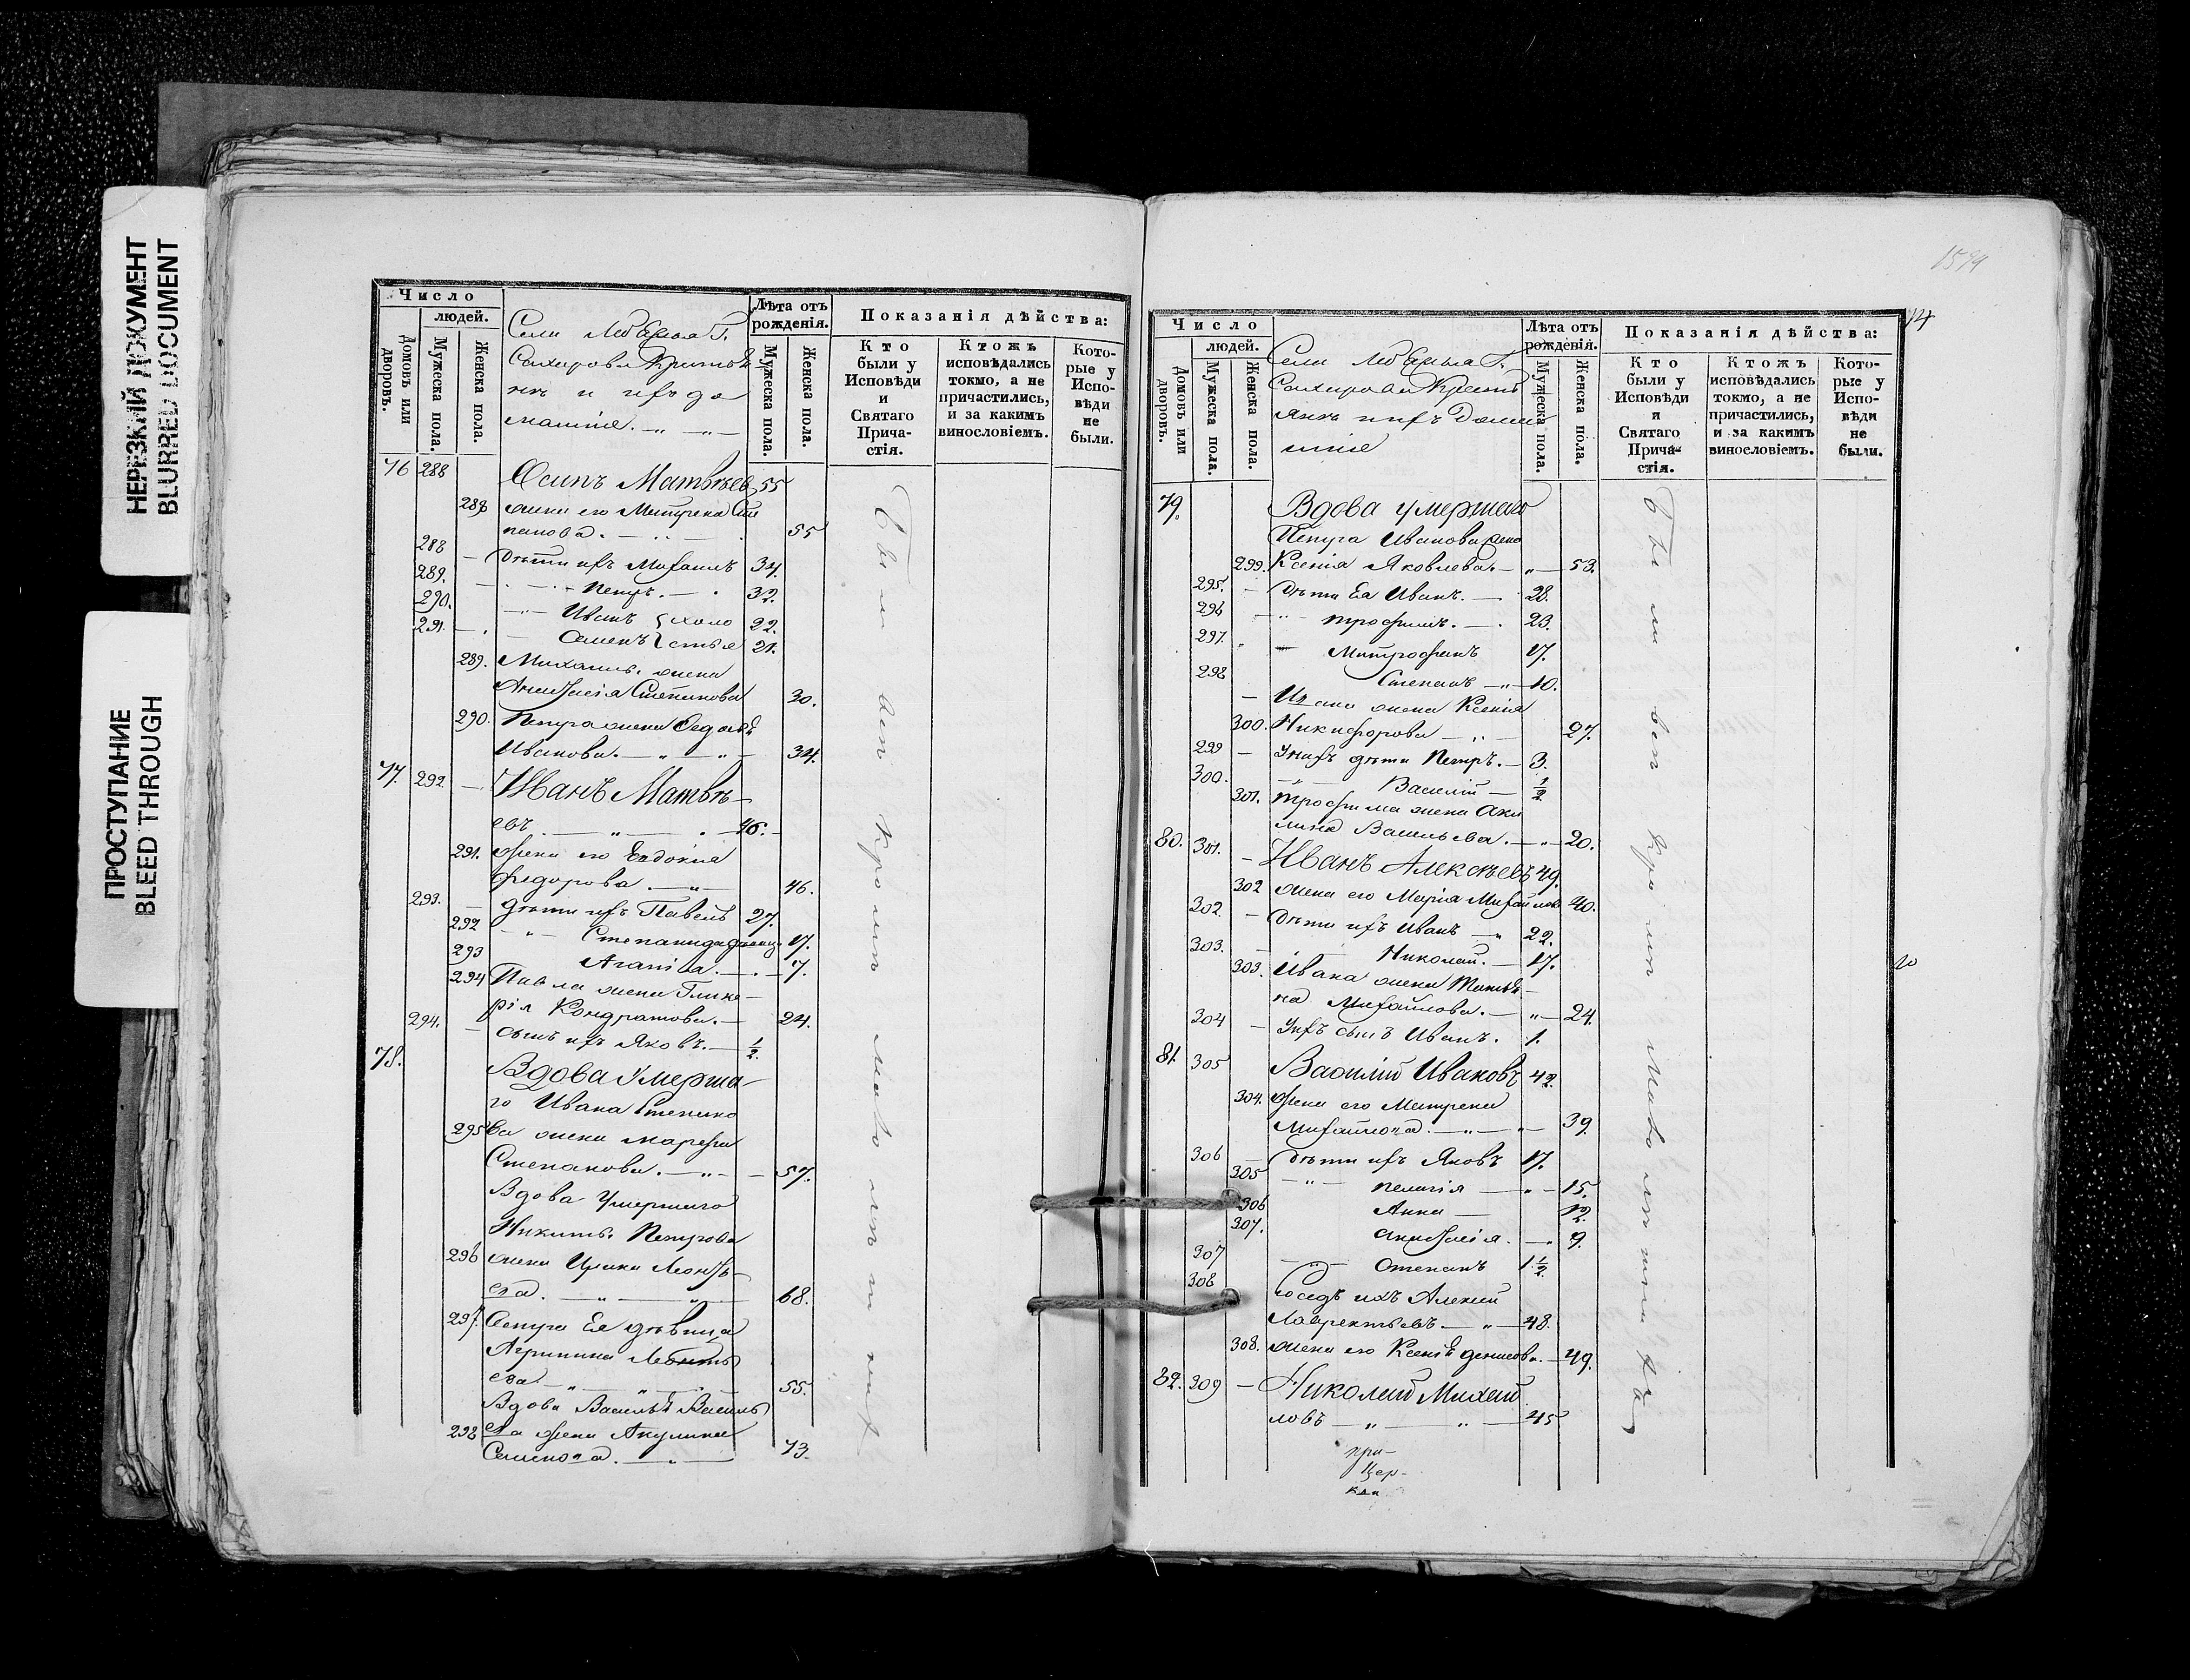 НЕРЕЗКИЙ ДОКУМЕНТ
BLURRED DOCUMENT
ПРОСТУПАНИЕ
BLEED THROUGH
Число
людей.
Домовъ или дворовъ.
Мужеска пола.
Женска пола.
Лѣта отъ рожденія.
Мужеска пола.
Женска пола.
Показанія дѣйства:
Кто были у Исповѣди и Святаго Причастія.
Ктожъ исповѣдались токмо, а не причастились, и за какимъ винословіемъ.
Которые у Исповѣди не были.
76 288 Осипъ Матвѣев 55
288 жена его Матрена Сте
панова. 55
288 Дѣти ихъ Михаилъ 34.
289. Петръ. 32.
290. Иванъ } холо 22.
291. Семенъ } стые 21.
289. Михаила жена
Анисія Степанова 30.
290. Петра жена Федосья
Иванова. 34.
77. 292. Иванъ Матвѣ-
евъ. 46.
291. жена его Евдокия
Федорова. 46.
293. Дѣти ихъ Павелъ 27.
292 Степанида 17.
293 Агапія. 7.
294 Павла жена Глике-
рія Кондратова. 24.
294. сынъ ихъ Яковъ. ½.
78. Вдова Умерша-
го Ивана Степано
295 ва жена Марфа
Степанова. 57.
Вдова Умершаго
Никиты Петрова
296 жена Ирина Леонть-
ева. 68.
297. Сестра Ея дѣвица
Агрипина Леонть
ева. 55.
Вдова Василья Василь
298 ева жена Акулина
Семенова. 73.
1594
Число
людей.
Домовъ или дворовъ.
Мужеска пола.
Женска пола.
Лѣта отъ рожденія.
Мужеска пола.
Женска пола.
Показанія дѣйства:
Кто были у Исповѣди и Святаго Причастія.
Ктожъ исповѣдались токмо, а не причастились, и за какимъ винословіемъ.
Которые у Исповѣди не были.
79. Вдова умершаго
Петра Иванова жена
299. Ксенія Яковлева. 53.
295. Дѣти Ея Иванъ. 28.
296 Трофимъ. 23.
297. Митрофанъ 17.
298 Степанъ 10.
Ивана жена Ксенія
300. Никифорова 27.
299 У нихъ дѣти Петръ. 3.
300. Василій ½
301. Трофима жена Аку
лина Васильева. 20.
80. 301. Иванъ Алексѣевъ 49.
302 жена его Марія Михайлова 40.
302. Дѣти ихъ Иванъ 22.
303. Николай. 17.
303. Ивана жена Татья
на Михайлова. 24.
304 У нихъ сынъ Иванъ. 1.
81. 305 Василій Ивановъ 42.
304. жена его Матрена
Михайлова. 39.
306 Дѣти ихъ Яковъ 17.
305 Пелагія 15.
306 Анна 12.
307. Анисія. 9.
307 Степанъ 1½.
308 Сосѣдъ ихъ Алексій
Лаврентьевъ 48.
308. жена его Ксенія Денисова. 49.
82. 309 Николай Михай
ловъ 45